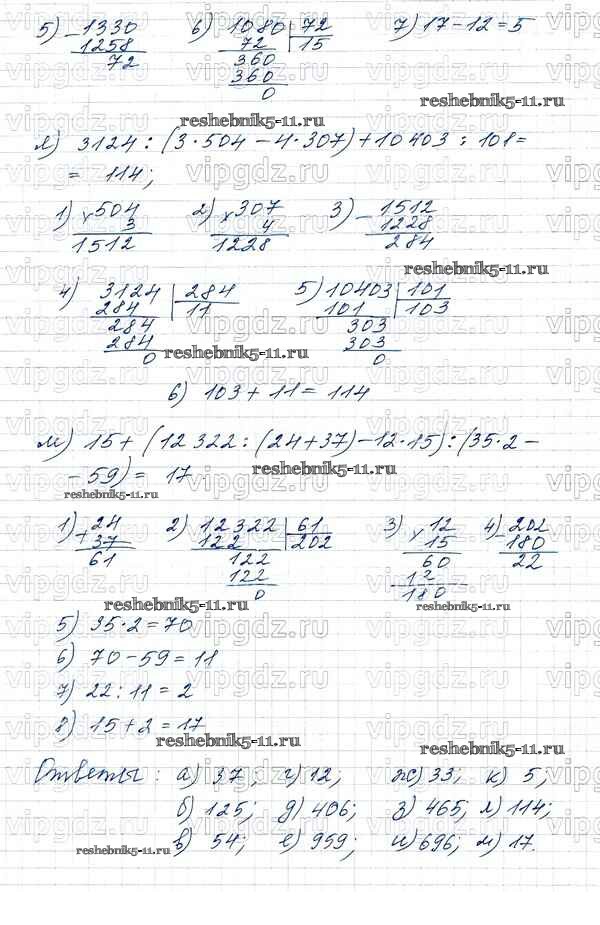 5) - 1330   6) 1080 | 72   7) 17 - 12 = 5
1258   72 | 15
72   360
360
0
reshebnik5-11.ru reshebnik5-11.ru
л) 3124 : (3·504 - 4·307) + 10403 : 101 =
= 114;
1) × 504   2) × 307   3) - 1512
3   4   1228
1512   1228   284
reshebnik5-11.ru
4) 3124 | 284   5) 10403 | 101
284 | 11   101 | 103
284   303
284   303
0   0
reshebnik5-11.ru
6) 103 + 11 = 114
м) 15 + (12322 : (24+37) - 12·15) : (35·2 -
- 59) = 17
reshebnik5-11.ru reshebnik5-11.ru
1) + 24   2) 12322 | 61   3) × 12   4) - 202
37   122 | 202   15   180
61   122   60   22
122   12
0   180
reshebnik5-11.ru
5) 35·2 = 70
6) 70 - 59 = 11
7) 22 : 11 = 2
8) 15 + 2 = 17
reshebnik5-11.ru
Ответы: а) 37, г) 12, ж) 33; к) 5;
б) 125; д) 406; з) 465, л) 114;
в) 54; е) 959; и) 696; м) 17.
reshebnik5-11.ru
vipgdz.ru